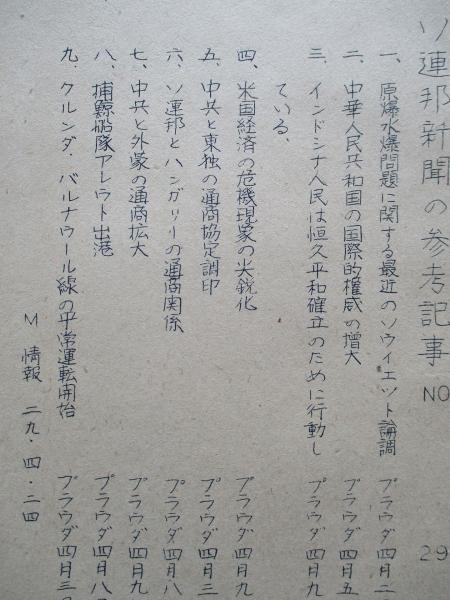 ソ連邦新聞の参考記事 NO 29
一、原爆水爆問題に関する最近のソヴィエット論調 プラウダ四月二
二、中華人民共和国の国際的権威の増大 プラウダ四月五
三、インドシナ人民は恒久平和確立のために行動し プラウダ四月九
ている、
四、米国経済の危機現象の尖鋭化 プラウダ四月九
五、中共と東独の通商協定調印 プラウダ四月三
六、ソ連邦とハンガリーの通商関係 プラウダ四月八
七、中共と外蒙の通商拡大 プラウダ四月九
八、捕鯨船隊アレウト出港 プラウダ四月八
九、クルンダ・バルナウール線の平常運転開始 プラウダ四月三
M 情報 二九・四・二四